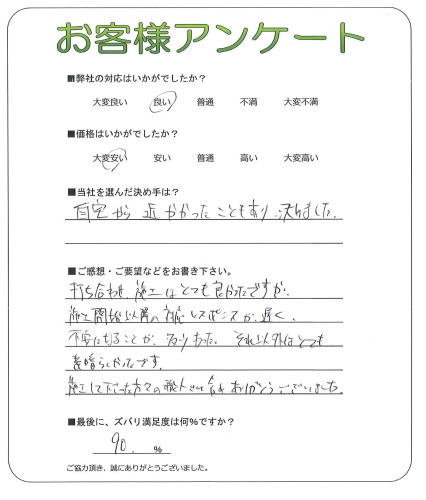 お客様アンケート
■弊社の対応はいかがでしたか？
大変良い 良い 普通 不満 大変不満
■価格はいかがでしたか？
大変安い 安い 普通 高い 大変高い
■当社を選んだ決め手は？
自宅から近かかったこともあり、決めました。
■ご感想・ご要望などをお書き下さい。
打ち合わせ、施工はとても良かったですが、
施工開始以前の対応、レスポンスが遅く、
不安になることが、多々あった。それ以外はとても
素晴らしかったです。
施工して下さった方々の職人さんもありがとうございました。
■最後に、ズバリ満足度は何%ですか？
90. %
ご協力頂き、誠にありがとうございました。